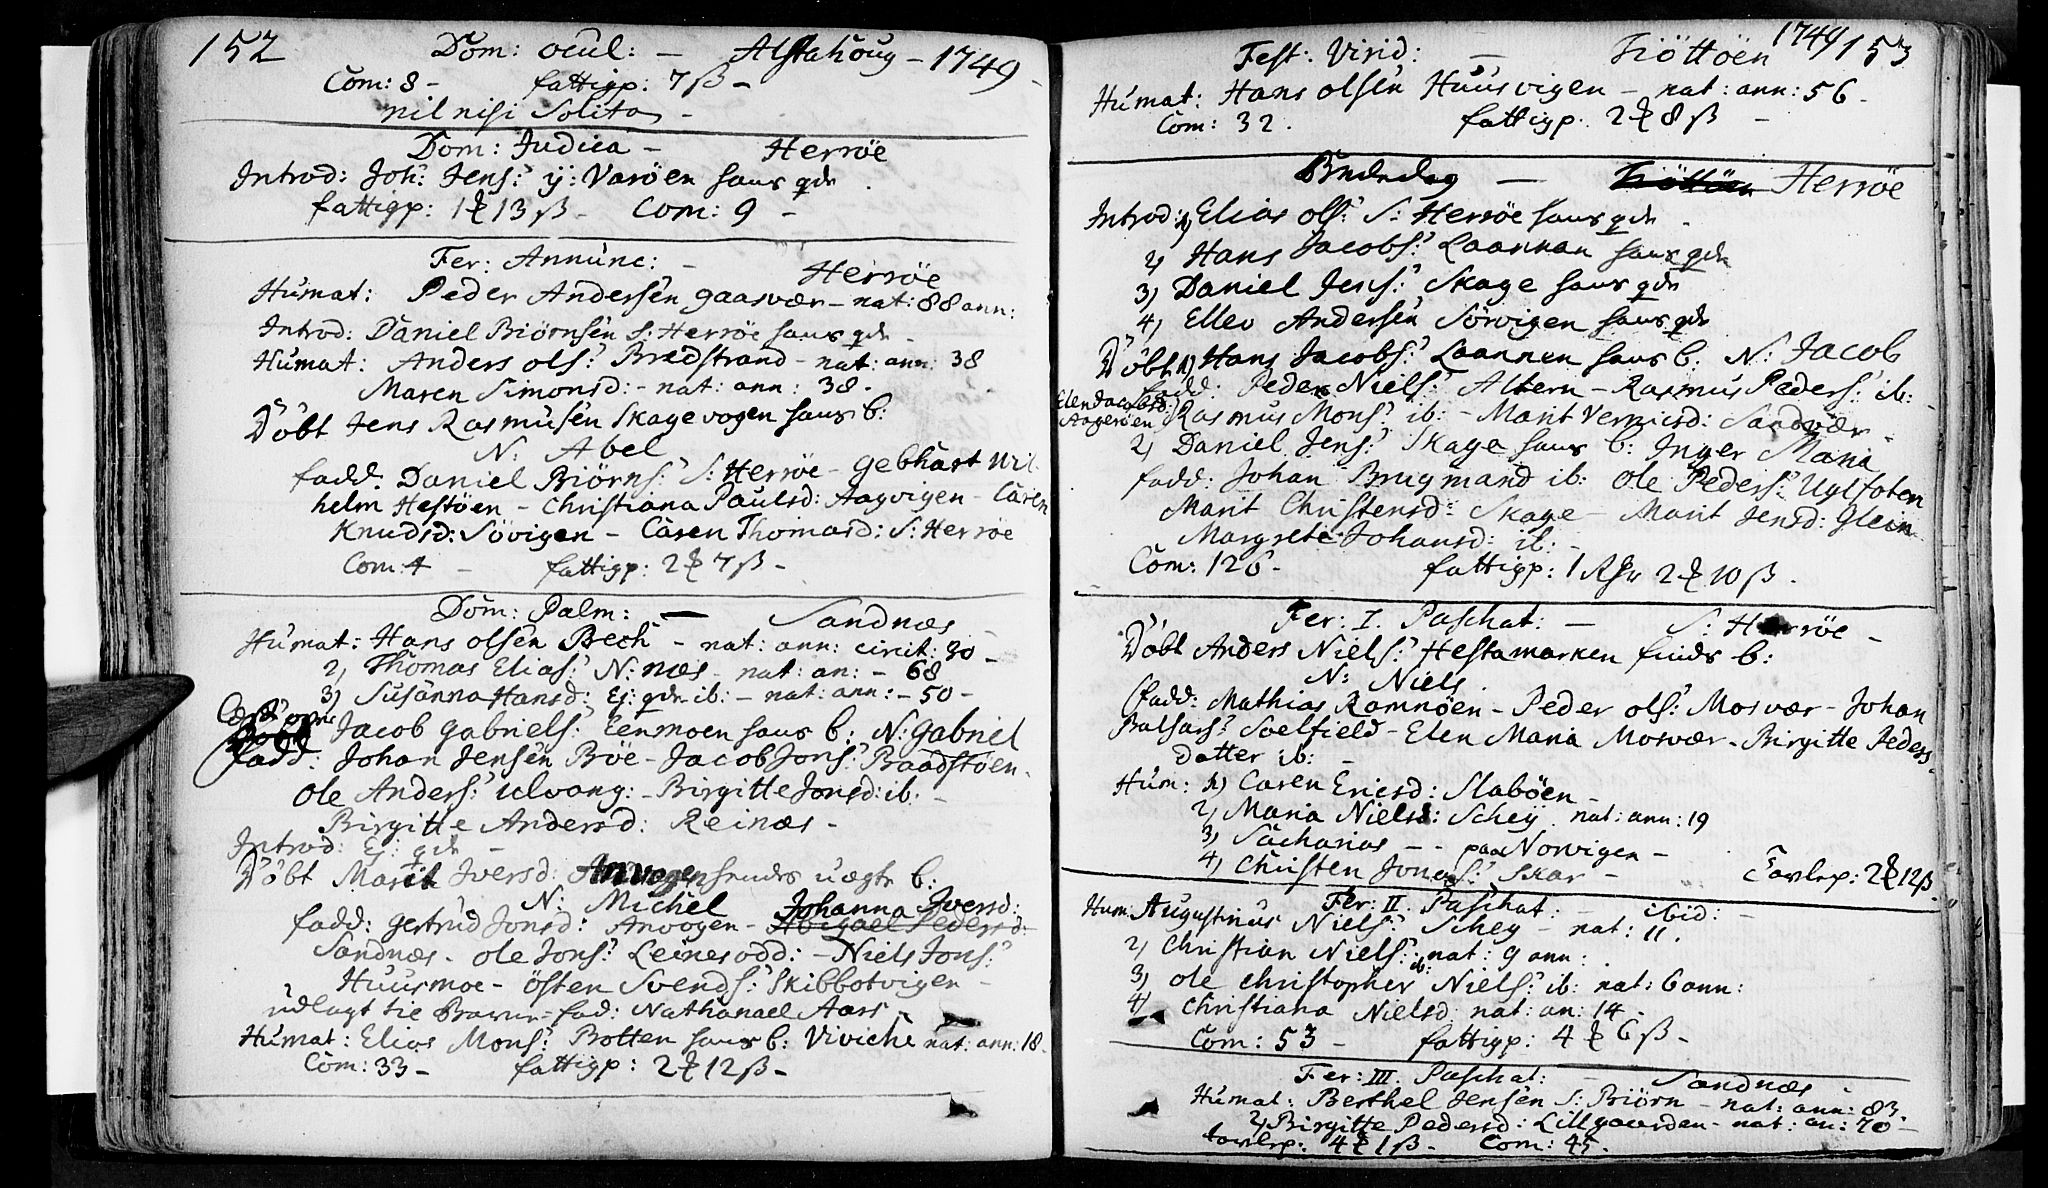 152 Dom: ocul: — Alstahoug – 1749 –
Com: 8 – fattigp: 7 ß –
nil nisi Solita –
Dom: Judica – Herrøe
Introd: Joh: Jens: ÿ: Varöen hans qde
fattigp: 1 ℔ 13 ß – Com: 9 –
Fer: Annunc: – Herrøe
Humat: Peder Andersen gaasvær – nat: 88 ann:
Introd: Daniel Biörnsen S: Herrøe hans qde –
Humat: Anders ols: Bredstrand – nat: ann: 38
Maren Simonsd: – nat: ann: 38.
Döbt Jens Rasmusen Skagevogen hans b:
N: Abel
fadd: Daniel Biörns: S: Herrøe – Gebhart Wil-
helm Hestöen – Christiana Paulsd: Aagvigen – Caren
Knudsd: Sövigen – Caren Thomasd: S: Herrøe
Com: 4 – fattigp: 2 ℔ 7 ß –
Dom: Palm: — Sandnæs –
Humat: Hans olsen Bech – nat: ann: circit: 30 –
2) Thomas Elias: N: næs – nat: an: – 68
3) Susanna Hansd: Ej: qde ib: – nat: ann: – 50 –
Jacob gabriels: Eenmoen hans b: N: Gabriel
fadd: Johan Jensen Böe – Jacob Jons: Baadstöen –
Ole Anders: Ulvang: – Birgitte Jonsd: ib: –
Birgitte Andersd: Reinæs –
Introd: Ej: qde –
Döbt Marit Iversd: hendes uægte b:
N: Michel Johanna Iversd:
fadd: Gertrud Jonsd: Anvogen – Abigael Pedersd:
Sandnæs – ole Jons: Leinesodd: – Niels Jons:
Huusmoe – östen Svends: Skibbotvigen –
udlagt til Barne-fad: Nathanael Aars –
Humat: Elias Mons: Botten hans b: Viviche nat: ann: 18 –
Com: 33 – fattigp: 2 ℔ 12 ß –
1749 153
Fest: Virid: — Tiöttöen
Humat: Hans olsen Huusvigen – nat: ann: 56 –
Com: 32. fattigp: 2 ℔ 8 ß –
Bededag — Tiöttöen Herrøe
Introd: 1) Elias ols: S: Herrøe hans qde –
2) Hans Jacobs: Laannan hans qde
3) Daniel Jens: Skage hans qde
4) Ellev Andersen Sörvigen hans qde
Döbt 1) Hans Jacobs: Laannen hans b: N: Jacob
fadd: Peder Niels: Altern – Rasmus Peders: ib: –
Elen Jacobsd: Rasmus Mons: ib: – Marit Vernicsd: Sandvær –
Aagerøen
2) Daniel Jens: Skage hans b: Inger Maria
fadd: Johan Brugmand ib: Ole Peders: Uglfoten
Marit Christensd: Skage – Marit Jensd: Glein
Margrete Johansd: ib: –
Com: 126 – fattigp: 1 Rdr 2 ℔ 10 ß –
Fer: I. Paschat: — S: Herrøe –
Döbt Anders Niels: Hestamarken b:
N: Niels
fadd: Mathias Ramnöen – Peder ols: Mosvær – Johan
Balsars: Soelfield – Elen Maria Mosvær – Birgitte Peders-
datter ib: –
Hum: 1) Caren Ericsd: Slaböen –
2) Maria Nielsd: Schey. nat: ann: 19
3) Sacharias – – paa Norvigen –
4) Christen Jonas: Skar – Tavlep: 2 ℔ 12 ß
Fer: II. Paschat: – ibid: –
Hum: Augustinus Niels: Schey – nat: 11.
2) Christian Niels: ib: nat: 9 ann: .
3) ole Christopher Niels: ib: nat: 6 ann:
4) Christiana Nielsd: nat: an: 14 –
Com: 53 – fattigp: 4 ℔ 6 ß –
Fer: III. Paschat: – Sandnæs –
Humat: Berthel Jensen S: Biörn – nat: ann: 83 –
2) Birgitte Pedersd: Lillgaarden – nat: an: 70 –
tavlep: 4 ℔ 1 ß – Com: 45.